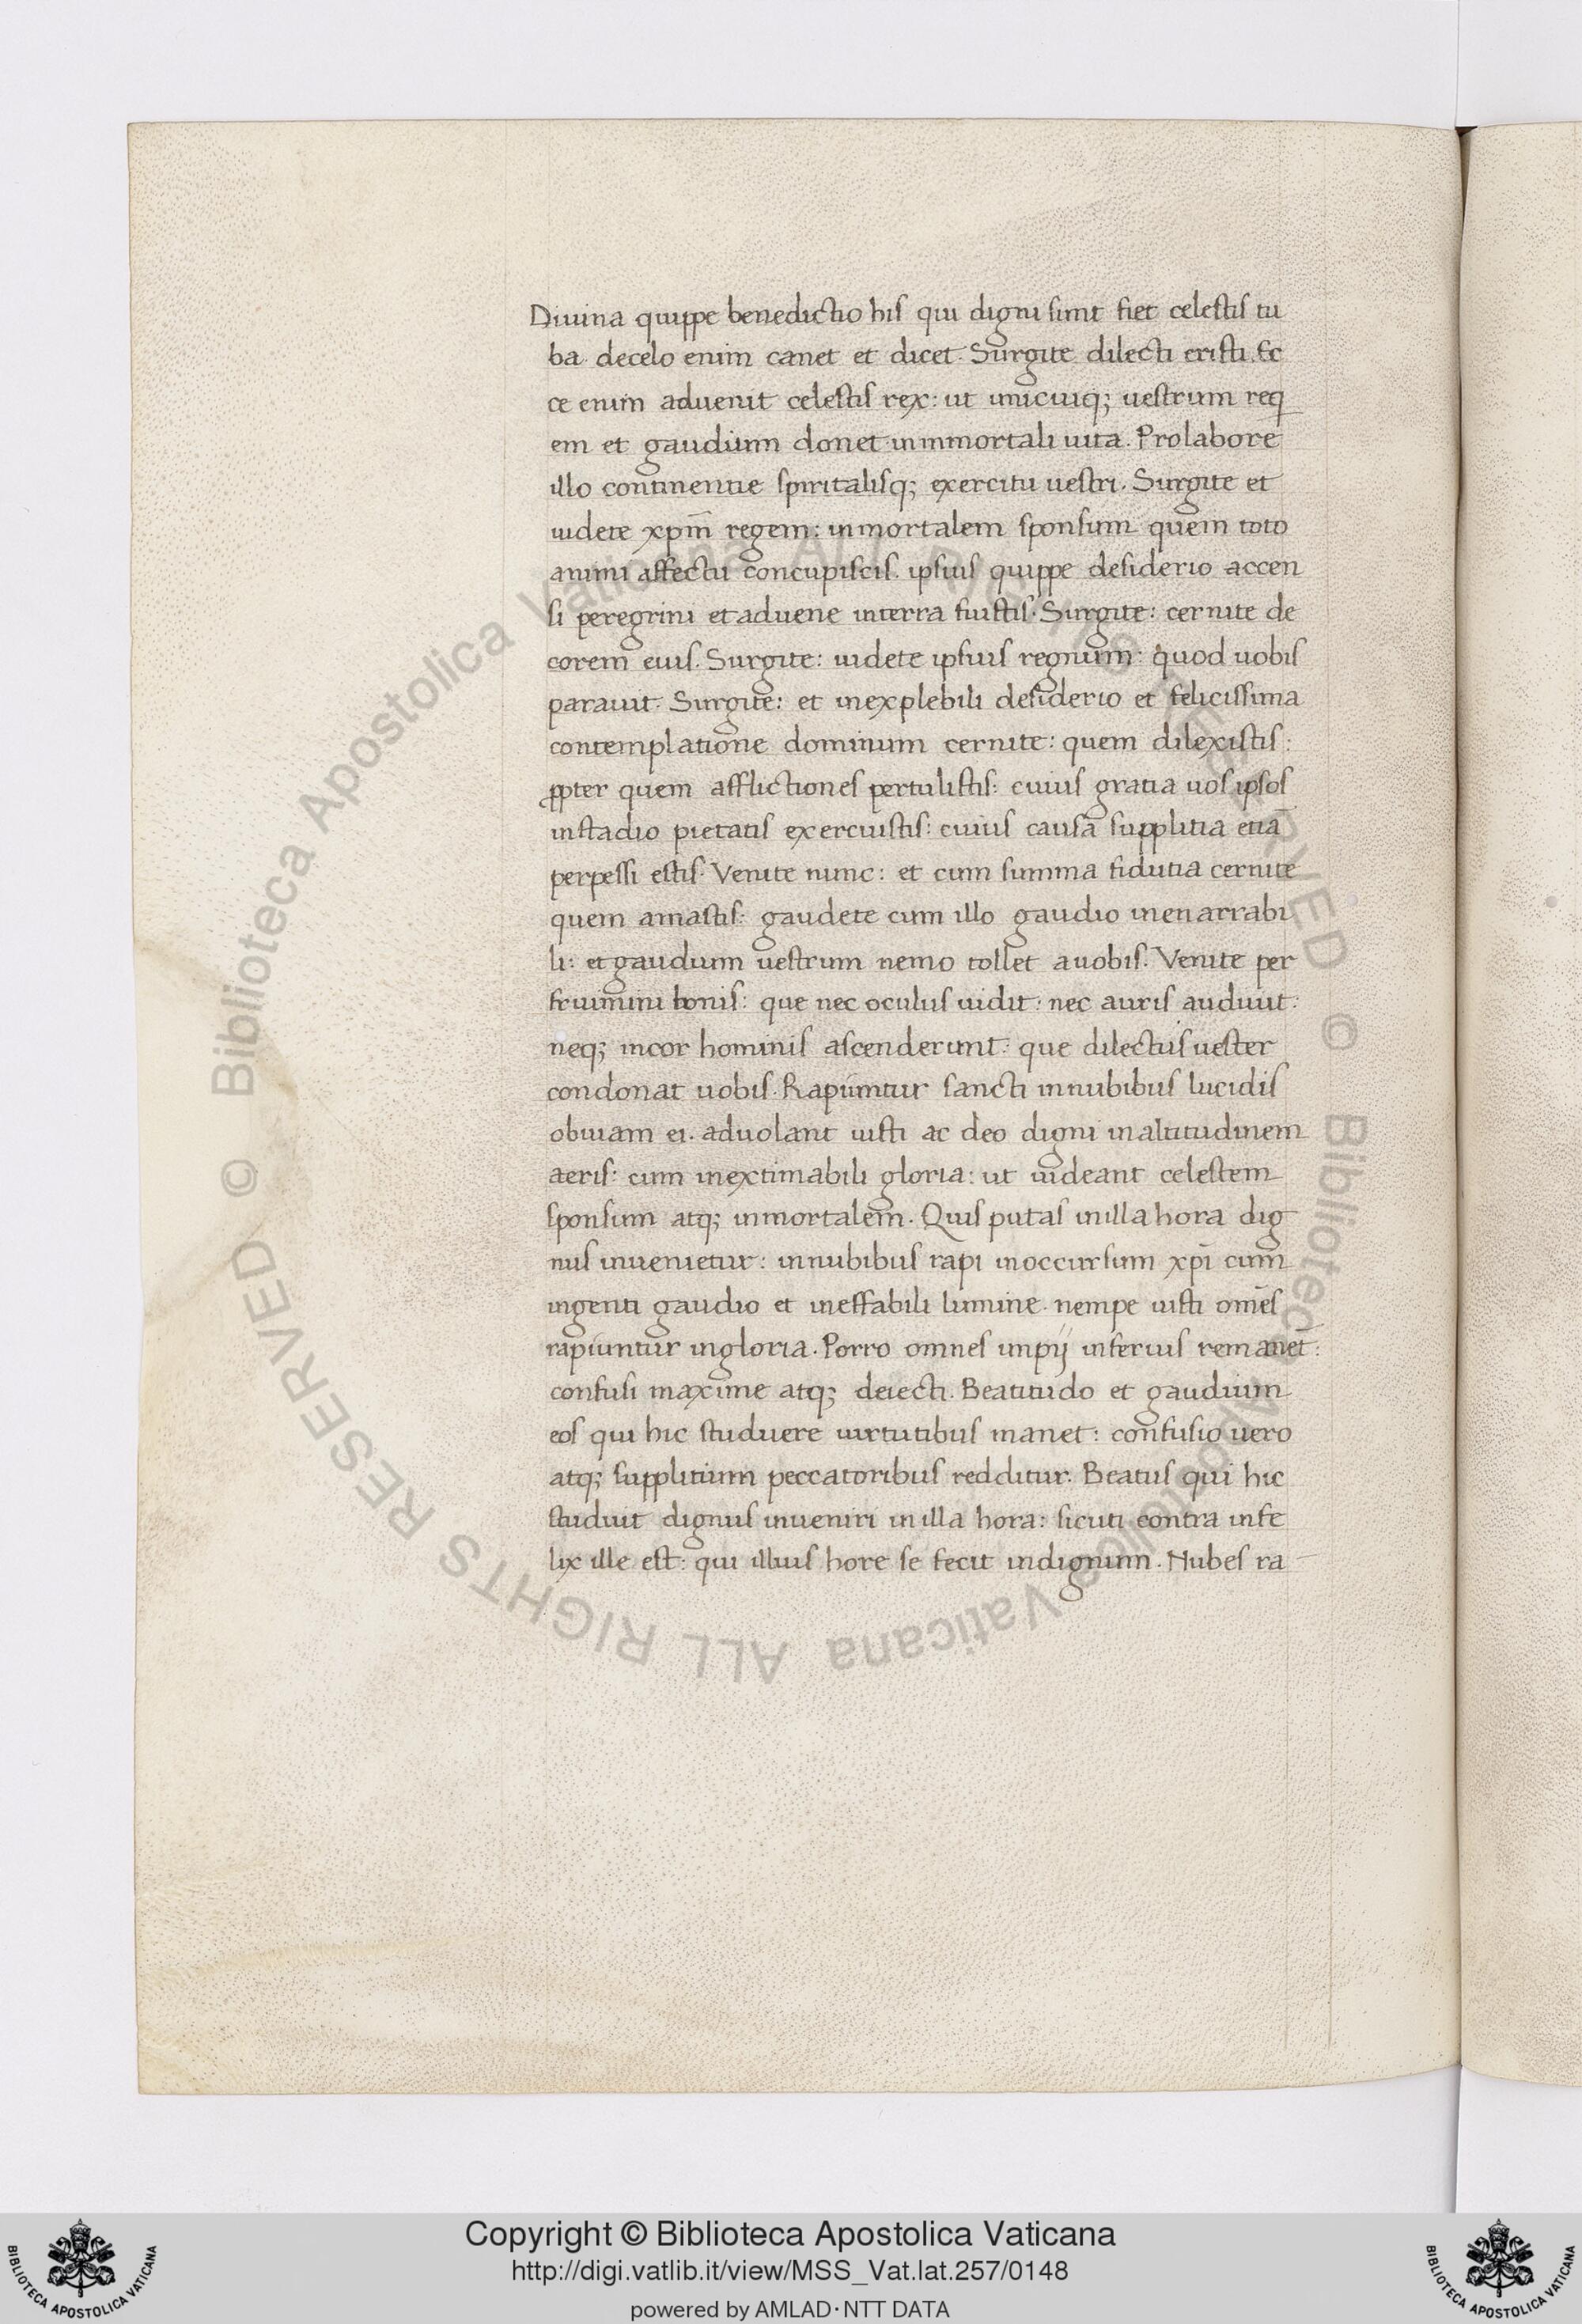 Diuina quippe benedictio his qui digni sunt fiet celestis tu
ba decelo enim canet et dicet. Surgite dilecti cristi. Ec
ce enim aduenit celestis rex: ut unicuiq; uestrum req
em et gaudium donet inmmortali uita. Prolabore
illo continentie spiritalisq; exercitu uestri. Surgite et
uidete xpm̄ regem: inmortalem sponsum quem toto
animi affectu concupiscis. ipsius quippe desiderio accen
si peregrini et aduene interra fuistis. Surgite: cernite de
corem eius. Surgite: uidete ipsius regnum: quod uobis
parauit. Surgite: et inexplebili desiderio et felicissima
contemplatione dominum cernite: quem dilexistis:
ꝓpter quem afflictiones pertulistis: cuius gratia uos ipsos
instadio pietatis exercuistis: cuius causā supplitia etiā
perpessi estis. Venite nunc: et cum summa fidutia cernite
quem amastis: gaudete cum illo gaudio inenarrabi
li: et gaudium uestrum nemo tollet auobis. Venite per
fruimini bonis: que nec oculus uidit: nec auris audiuit:
neq; incor hominis ascenderunt: que dilectus uester
condonat uobis. Rapiuntur sancti innubibus lucidis
obuiam ei. aduolant iusti ac deo digni inaltitudinem
aeris: cum inextimabili gloria: ut uideant celestem
sponsum atq; inmortalem. Quis putas inilla hora dig
nus inuenietur: innubibus rapi inoccursum xpī cum
ingenti gaudio et ineffabili lumine. nempe iusti om̄es
rapiuntur ingloria. Porro omnes impij inferius remanēt:
confusi maxime atq; deiecti. Beatitudo et gaudium
eos qui hic studuere uirtutibus manet: confusio uero
atq; supplitium peccatoribus redditur. Beatus qui hic
studuit dignus inueniri inilla hora: sicuti contra infe
lix ille est: qui illius hore se fecit indignum. Nubes ra
Biblioteca Apostolica Vaticana ALL RIGHTS RESERVED ©
Copyright © Biblioteca Apostolica Vaticana
http://digi.vatlib.it/view/MSS_Vat.lat.257/0148
powered by AMLAD·NTT DATA
BIBLIOTECA APOSTOLICA VATICANA
BIBLIOTECA APOSTOLICA VATICANA